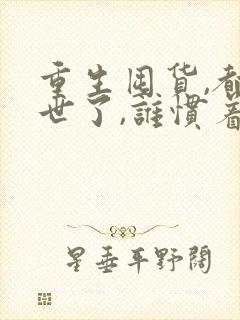 重生囤货,都
世了,誰慣着
星垂平野闊